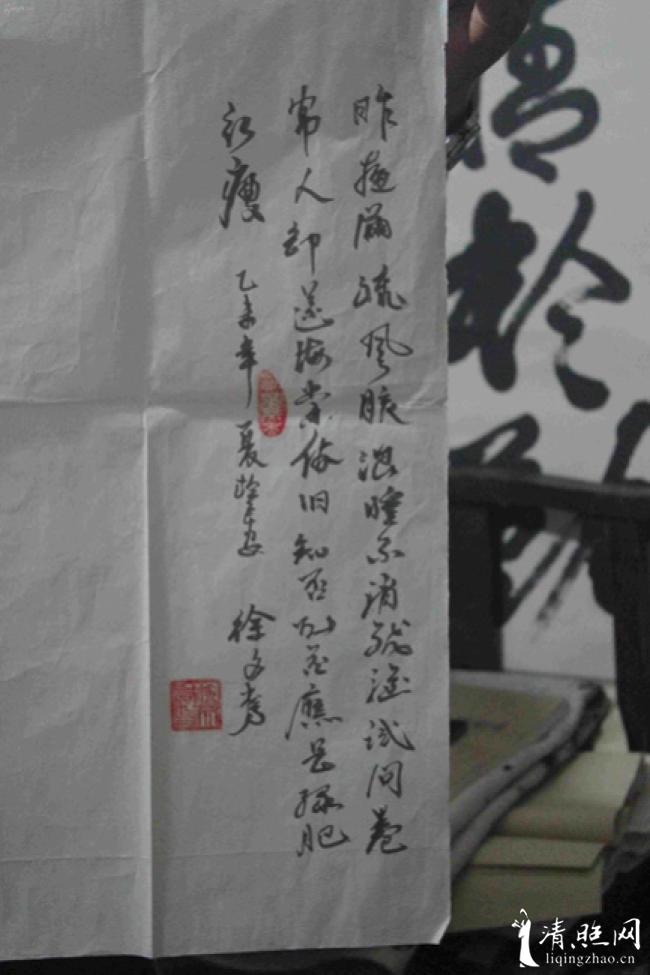 昨夜雨疏风骤浓睡不消残酒试问卷
帘人却道海棠依旧知否知否應是绿肥
红瘦 乙未年夏
徐文
清照网
liqingzhao.cn